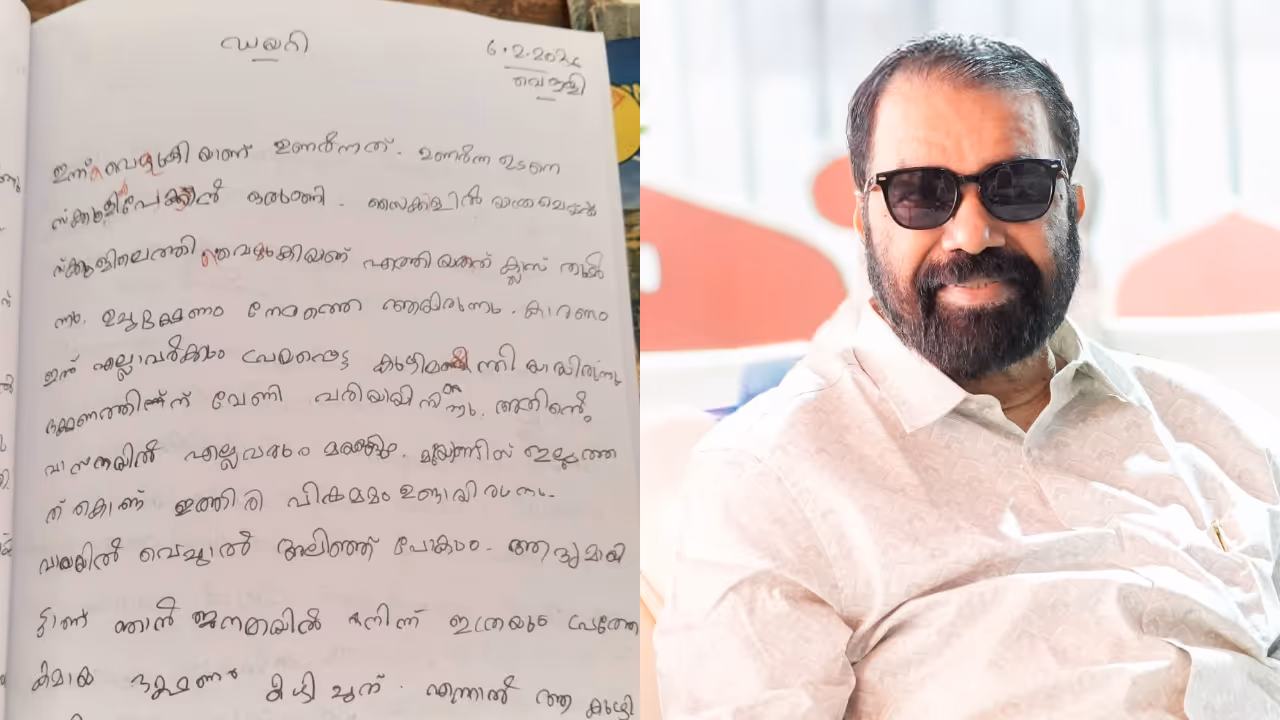 ഡയറി
6.2.2026
വെള്ളി
ഇന്ന് വൈകി യാണ് ഉണർന്നത്. ഉണർന്ന ഉടനെ
സ്ക്കൂളിപോക്കാൻ ഒരുങ്ങി. സൈക്കിളിൽ യാത്രചെയ്തു
സ്ക്കൂളിലെത്തി വൈകിയാണ് എത്തി യത് ക്ലാസ് തുടങ്ങി
ന്നു. ഉച്ചഭക്ഷണം നേരത്തെ ആയിരുന്നു. കാരണം
ഇന്ന് എല്ലാവർക്കും പ്രിയപ്പെട്ട കുഴിമ ന്തി യായിരുന്നു
ഭക്ഷണത്തിന് വേണി വരിയായി നിന്നു. അതിന്റെ
വാസനയിൽ എല്ലവരും മയങ്ങും. മയൂണിസ് ഇല്ലാത്ത
ത് കൊണ്ട് ഇത്തിരി വിഷമമം ഉണ്ടായി രുന്നു.
വായയിൽ വെച്ചാൽ അലിഞ്ഞ് പോകും. ആദ്യമായി
ട്ടാണ് ഞാൻ ജീവിതത്തിൽ നിന്ന് ഇത്രയും പ്രത്തേ
കമായ ഭക്ഷണം കഴി ച്ചത്. എന്നാൽ ആ കുഴി